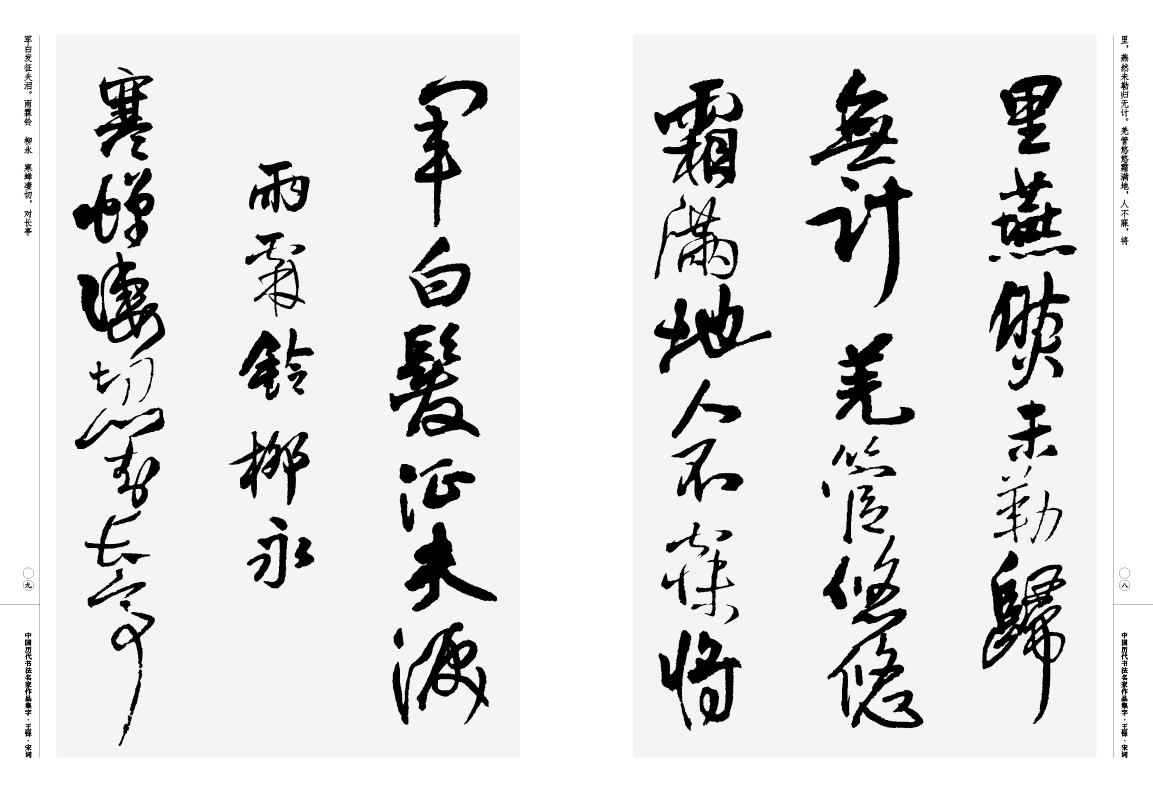 里，燕然未勒归无计。羌管悠悠霜满地，人不寐，将
里燕然未勒歸
無計羌管悠悠
霜滿地人不寐將
〇八
中国历代书法名家作品集字·王铎·宋词
軍白髮征夫淚
雨霖鈴柳永
寒蟬凄切對長亭
军白发征夫泪。雨霖铃 柳永 寒蝉凄切。对长亭
〇九
中国历代书法名家作品集字·王铎·宋词